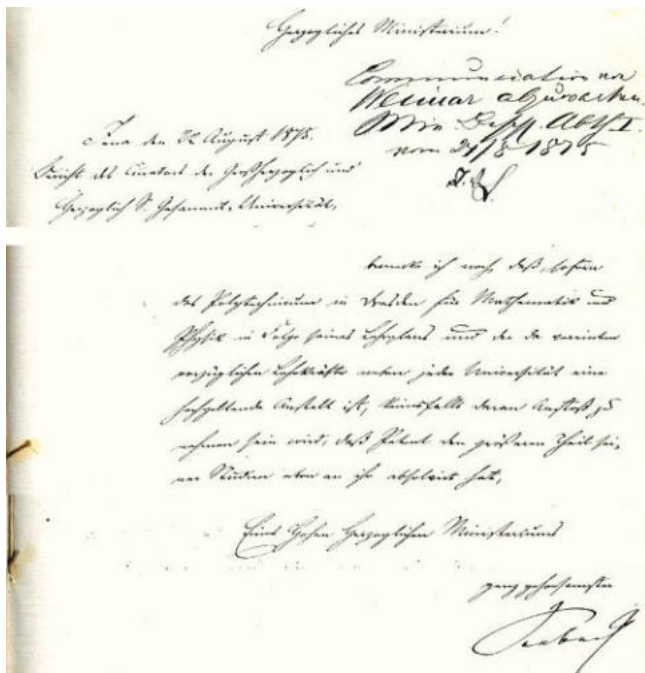 Herzogliches Ministerium!
Communication von
Weimar abzuwarten.
Min. Dept. Abth. I.
vom 24/8 1875
Jena den 22 August 1875.
Bericht des Curators der Großherzoglich und
Herzoglich S. Gesammt-Universität,
bemerke ich noch, daß, sofern
das Polytechnicum in Dresden für Mathematik und
Physik in Folge seines Lehrplans und der da vereinten
vorzüglichen Lehrkräfte neben jeder Universität eine
hochgeltende Anstalt ist, keinesfalls daran Anstoß zu
nehmen sein wird, daß Petent den größeren Theil sei-
ner Studien eben an ihr absolvirt hat,
Eines Hohen Herzoglichen Ministeriums
ganz gehorsamster
Seebeck